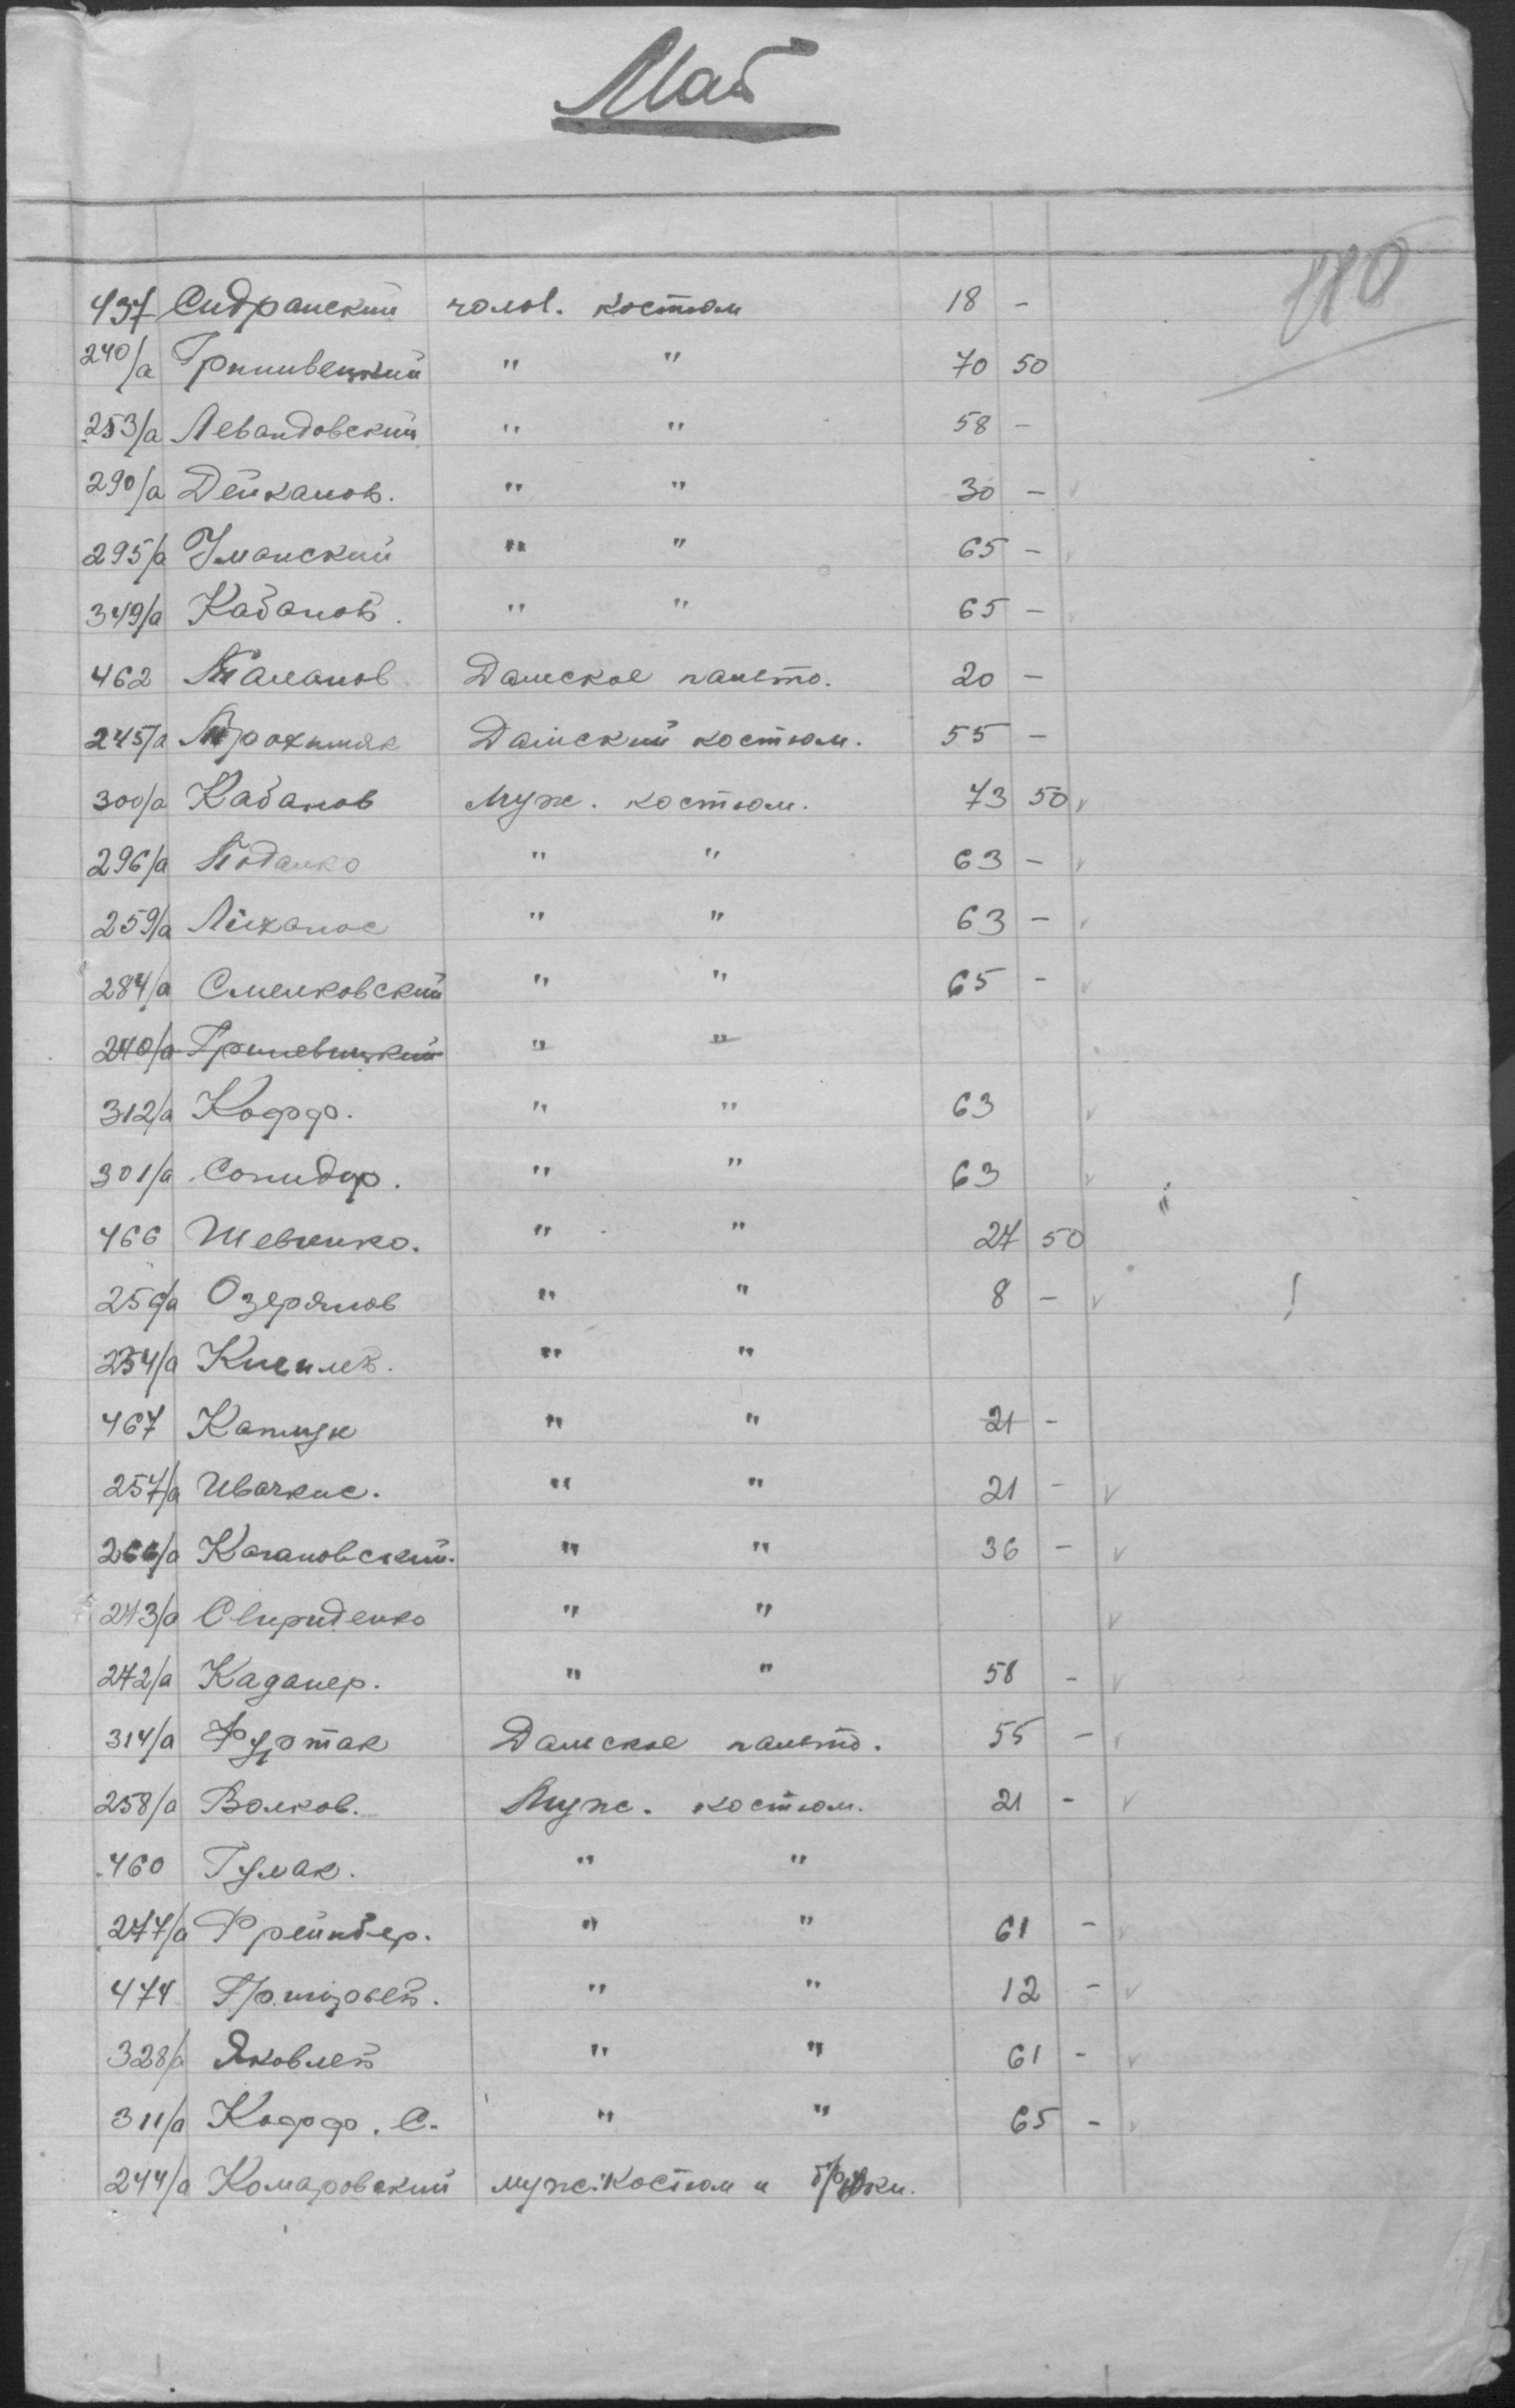 Май
110
437 Сидранский чолов. костюм 18 -
240/а Гриневецкий " " 70 50
253/а Левандовский " " 58 -
290/а Дейканов. " " 30 - v
295/а Уманский " " 65 - v
349/а Кабанов. " " 65 -
462 Таланов Дамское пальто. 20 -
245/а Трохимяк Дамский костюм. 55 -
300/а Кабанов Муж. костюм. 73 50 v
296/а " " 63 - v
259/а " " 63 - v
284/а Смелковский " " 65 - v
240/а Гриневицкий " "
312/а Кофф. " " 63 v
301/а " " 63 v
466 Шевченко. " " 27 50
256/а Озерянов " " 8 - v
254/а " "
467 " " 21 -
257/а Ивачкис. " " 21 - v
266/а Кагановский. " " 36 - v
243/а Свириденко " " v
272/а Каданер. " " 58 - v
314/а Фуртак Дамское пальто. 55 - v
258/а Волков. Муж. костюм. 21 - v
460 Гумак. " "
277/а " " 61 - v
474 " " 12 - v
328/а Яковлев " " 61 - v
311/а Кофф. С. " " 65 - v
244/а Комаровский муж. костюм и брюки.